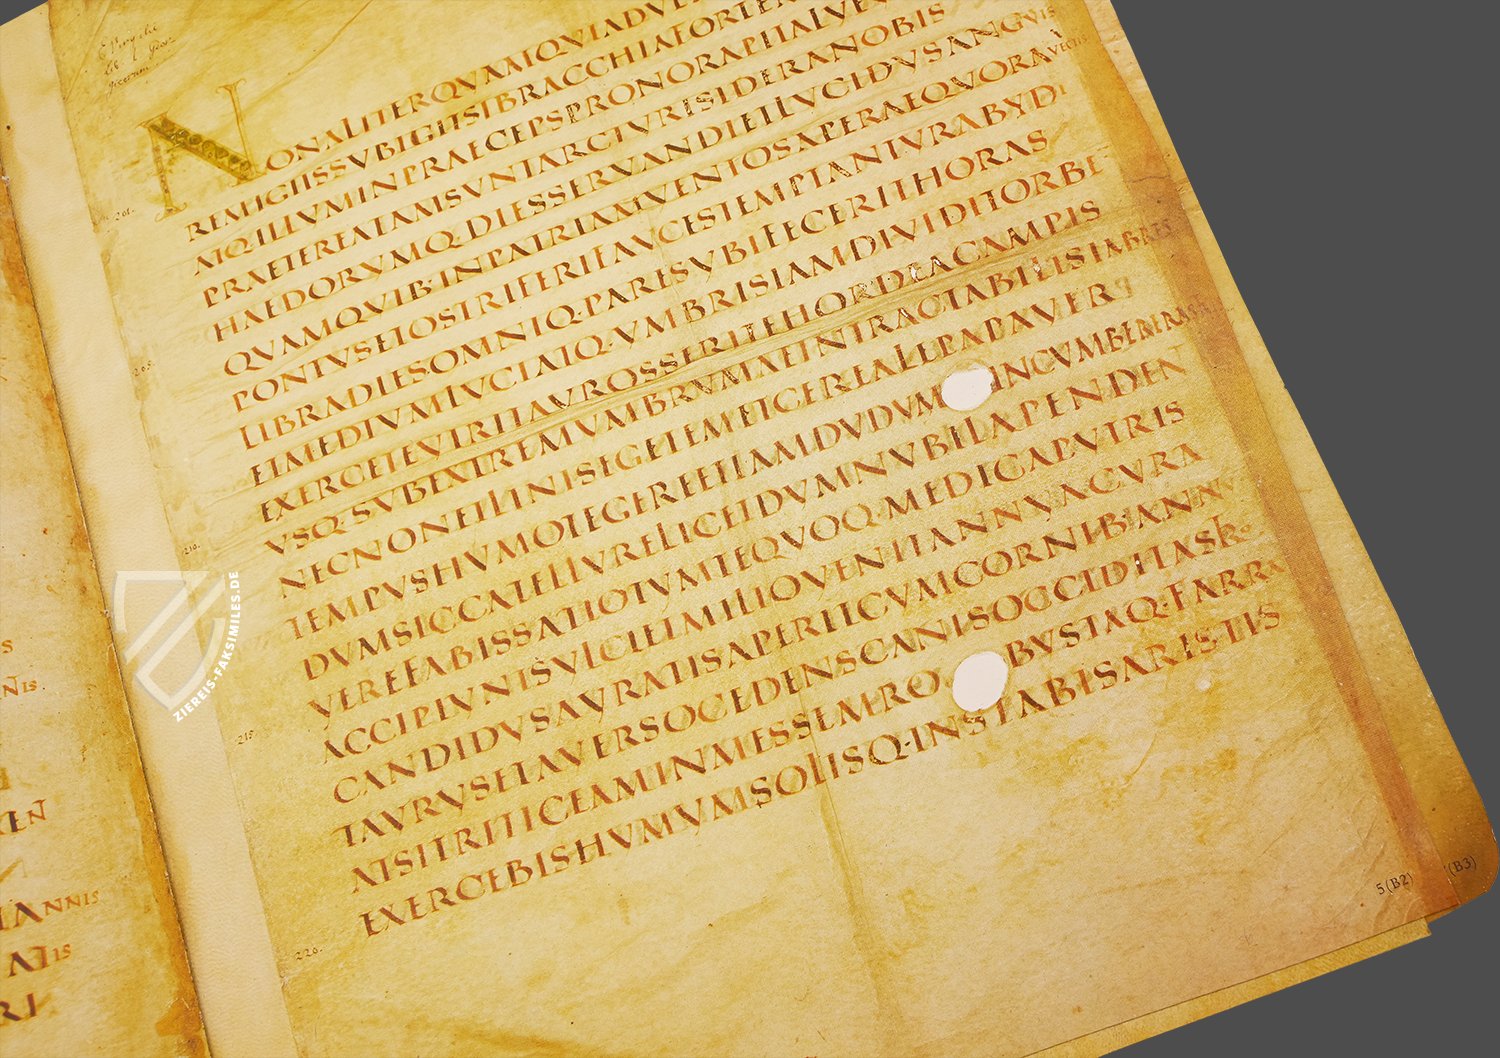 E Virgilii
lib. 1 Geor-
gicorum
NONALITERQVAMQVIADVE
REMIGIISSVBIGITSIBRACCHIAFORTERE
ATQ·ILLVMINPRAECEPSPRONORAPITALVE
PRAETEREATAMSVNTARCTVRISIDERANOBIS
HAEDORVMQ·DIESSERVANDIETLVCIDVSANGVIS
QVAMQVIB·INPATRIAMVENTOSAPERAEQVORAVECTIS
PONTVSETOSTRIFERIFAVCESTEMPTANTVRABYDI
LIBRADIESOMNIQ·PARESVBIFECERITHORAS
ETMEDIVMLVCIATQ·VMBRISIAMDIVIDITORBE
EXERCETEVIRITAVROSSERITEHORDEACAMPIS
VSQ·SVBEXTREMVMBRVMAEINTRACTABILISIMBRES
NECNONETLINISEGETEMETCEREALEPAPAVER
TEMPVSHVMOTEGEREETIAMDVDVMINCVMBERERASTRIS
DVMSICCATELLVRELICETDVMNVBILAPENDEN
VEREFABISSATIOTVMTEQVOQ·MEDICAPVTRIS
ACCIPIVNTSVLCIETMILIOVENITANNVACVRA
CANDIDVSAVRATISAPERITCVMCORNIB·ANNV
TAVRVSETAVERSOCEDENSCANISOCCIDITASRO
ATSITRITICEAMINMESSEMROBVSTAQ·FARRA
EXERCEBISHVMVMSOLISQ·INSTABISARISTIS
201.
205.
210.
215.
220.
5(B2)
(B3)
S
NIS.
EN
ANNIS
ATIS
RI
ZIEREIS-FAKSIMILES.DE